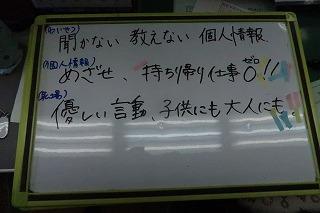 (わいせつ)
聞かない 教えない 個人情報
(個人情報)
めざせ、持ち帰り仕事0!!
ゼロ
優しい言動、子供にも大人にも